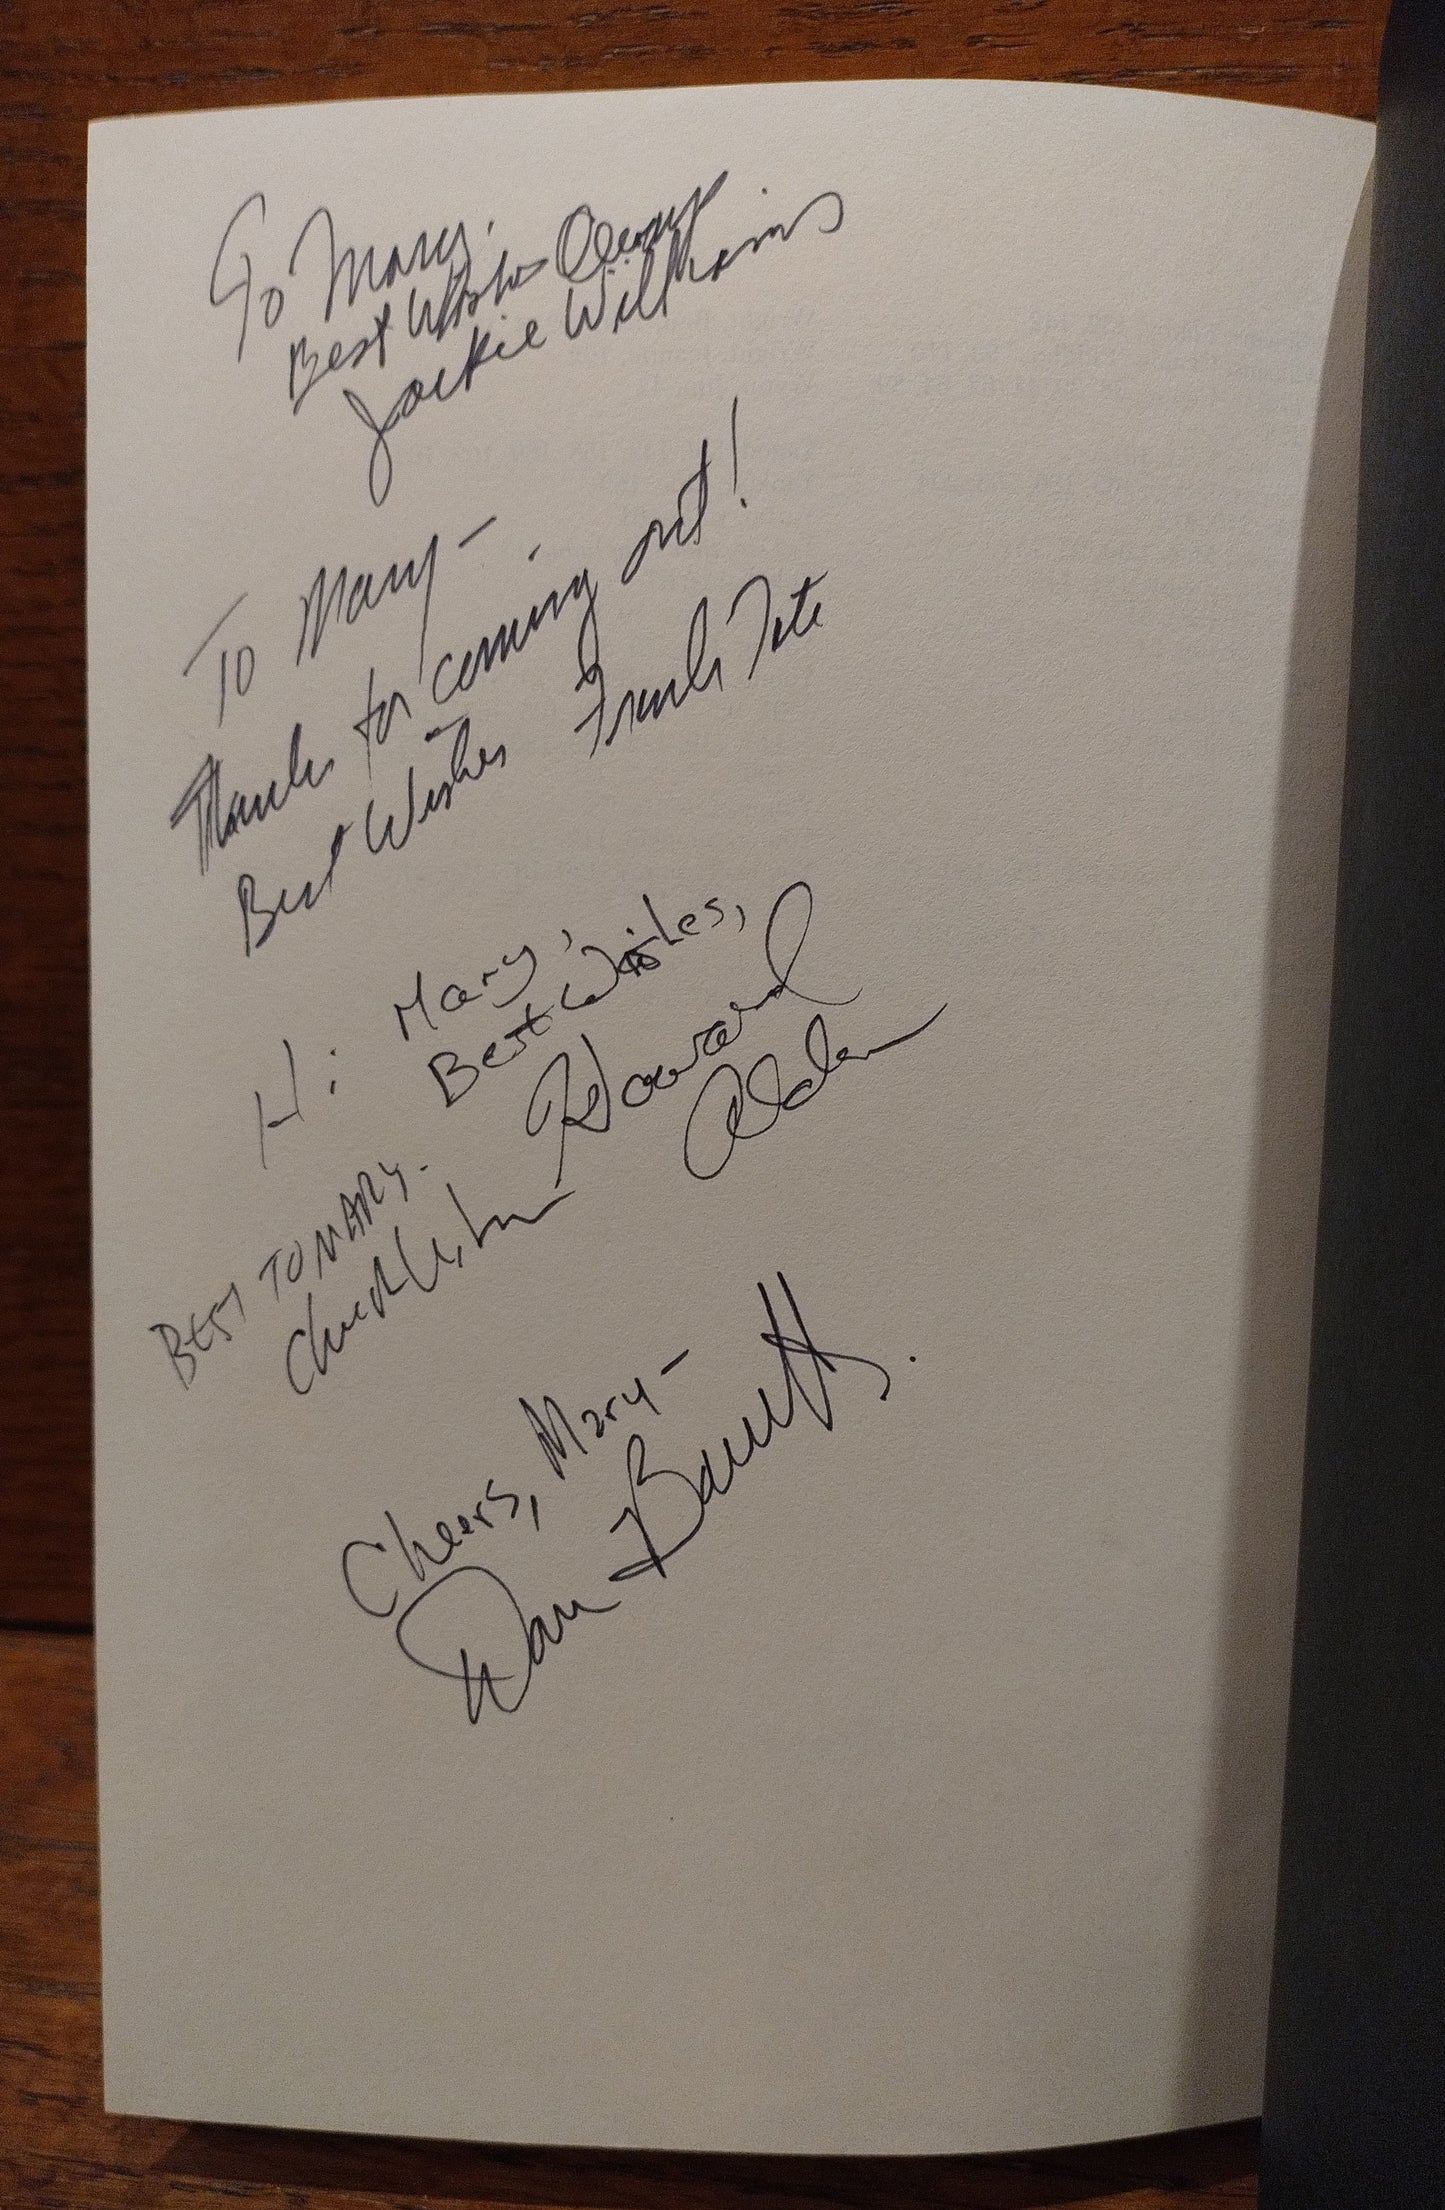 To Mary.
Best Wishes Always
Jackie Williams
To Mary -
Thanks for coming out!
Best Wishes Frank Tate
Hi Mary,
Best Wishes,
Howard
Alden
BEST TO MARY.
Chuck Wilson
Cheers, Mary -
Dan Barrett.